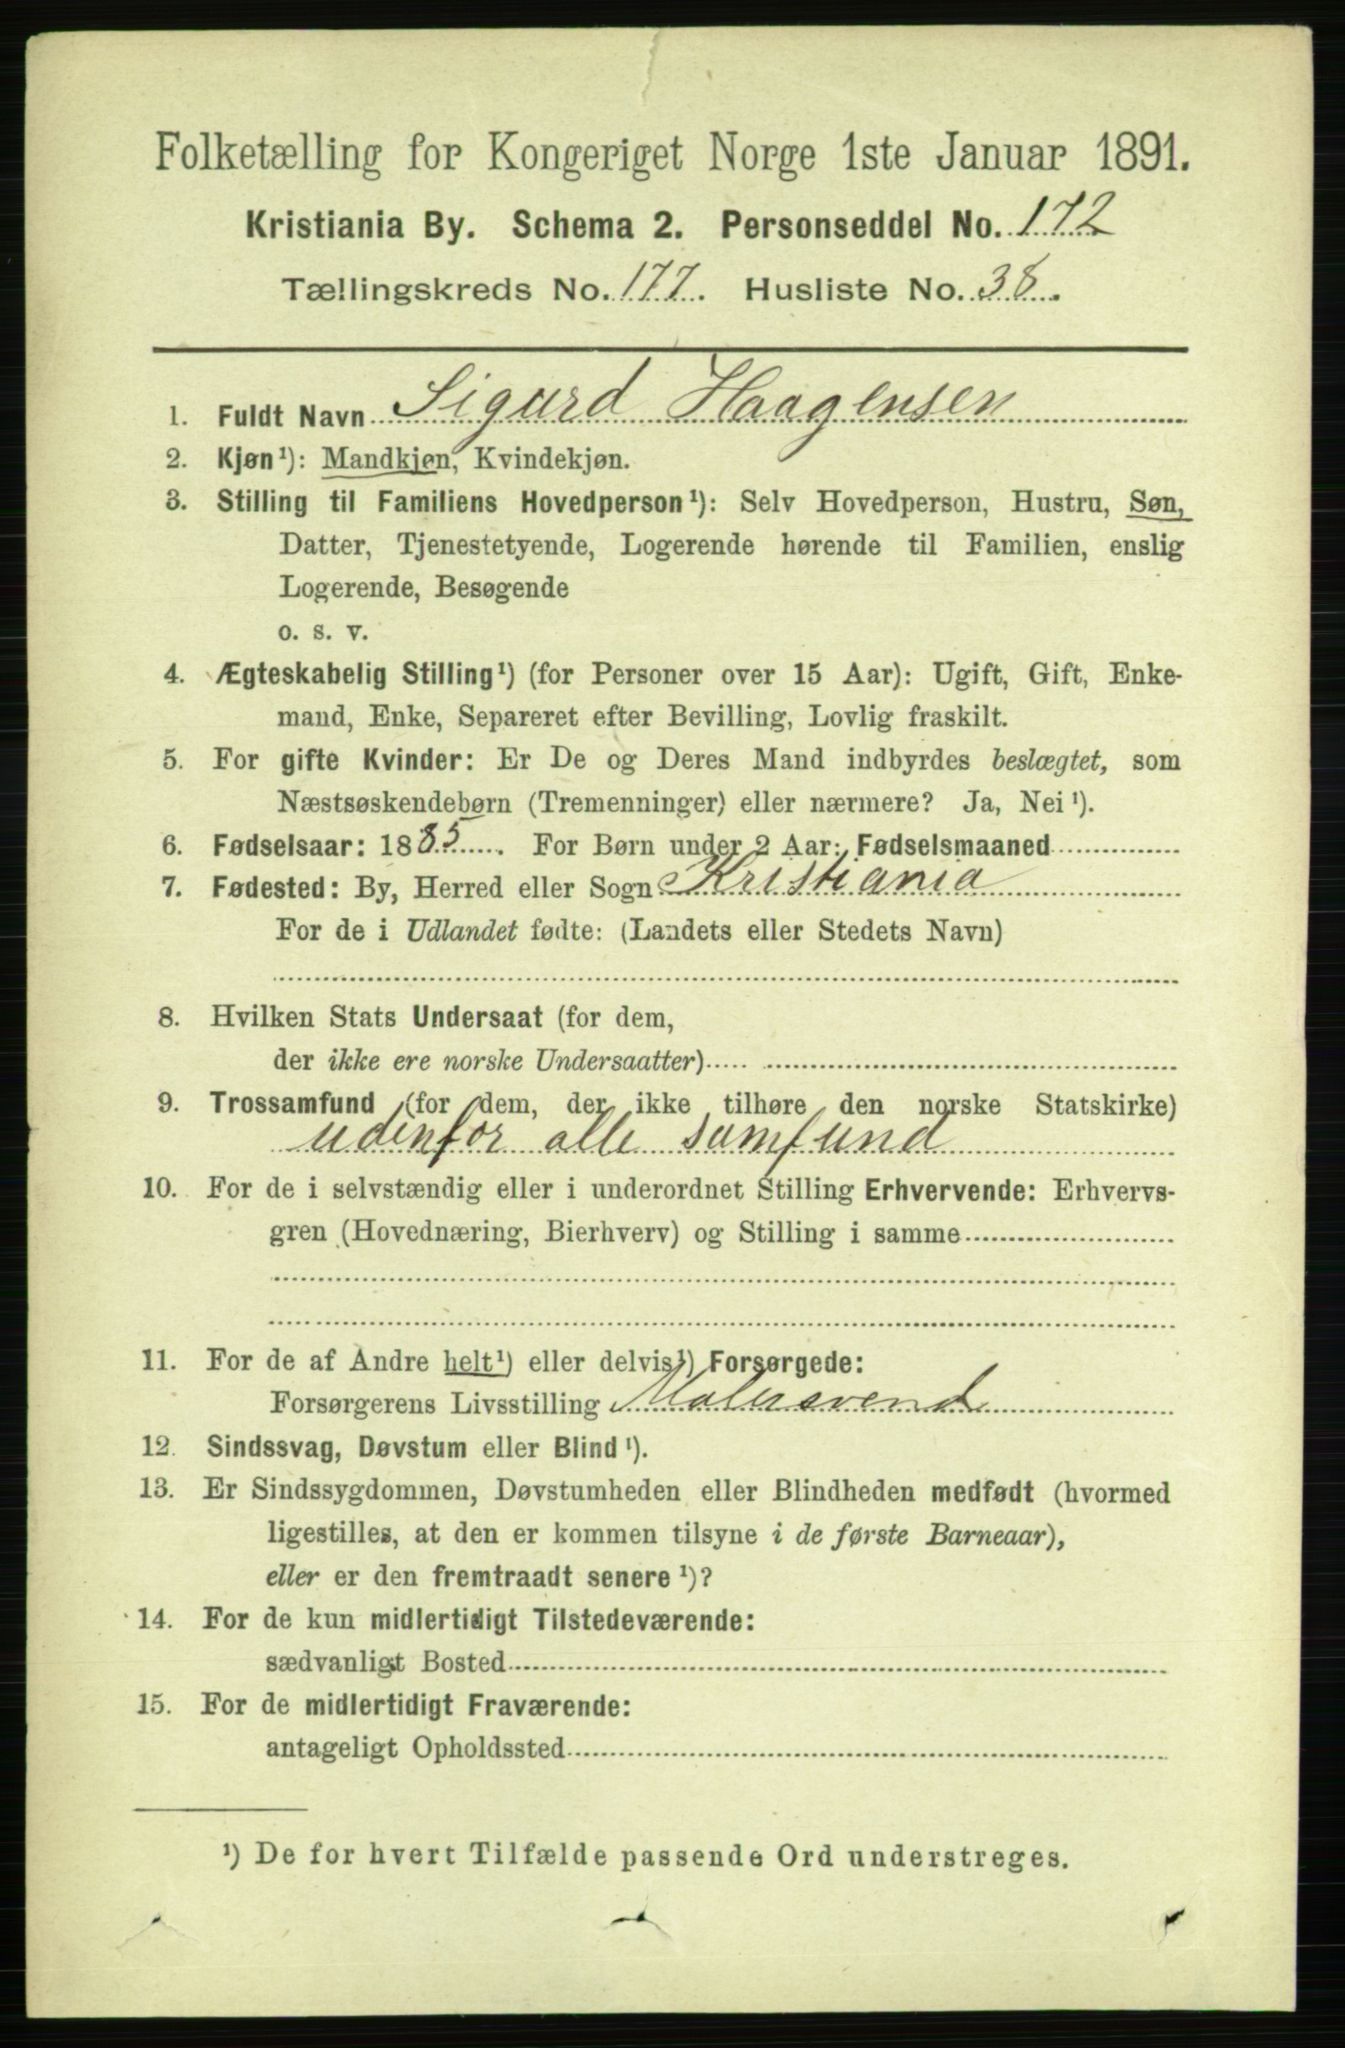 Folketælling for Kongeriget Norge 1ste Januar 1891.
Kristiania By. Schema 2. Personseddel No. 172
Tællingskreds No. 177. Husliste No. 38.
1. Fuldt Navn Sigurd Haagensen
2. Kjøn¹): Mandkjøn, Kvindekjøn.
3. Stilling til Familiens Hovedperson¹): Selv Hovedperson, Hustru, Søn,
Datter, Tjenestetyende, Logerende hørende til Familien, enslig
Logerende, Besøgende
o. s. v.
4. Ægteskabelig Stilling¹) (for Personer over 15 Aar): Ugift, Gift, Enke-
mand, Enke, Separeret efter Bevilling, Lovlig fraskilt.
5. For gifte Kvinder: Er De og Deres Mand indbyrdes beslægtet, som
Næstsøskendebørn (Tremenninger) eller nærmere? Ja, Nei¹).
6. Fødselsaar: 1885. For Børn under 2 Aar: Fødselsmaaned
7. Fødested: By, Herred eller Sogn Kristiania
For de i Udlandet fødte: (Landets eller Stedets Navn)
8. Hvilken Stats Undersaat (for dem,
der ikke ere norske Undersaatter)
9. Trossamfund (for dem, der ikke tilhøre den norske Statskirke)
udenfor alle samfund
10. For de i selvstændig eller i underordnet Stilling Erhvervende: Erhvervs-
gren (Hovednæring, Bierhverv) og Stilling i samme
11. For de af Andre helt¹) eller delvis¹) Forsørgede:
Forsørgerens Livsstilling Malersvend
12. Sindssvag, Døvstum eller Blind¹).
13. Er Sindssygdommen, Døvstumheden eller Blindheden medfødt (hvormed
ligestilles, at den er kommen tilsyne i de første Barneaar),
eller er den fremtraadt senere¹)?
14. For de kun midlertidigt Tilstedeværende:
sædvanligt Bosted
15. For de midlertidigt Fraværende:
antageligt Opholdssted
¹) De for hvert Tilfælde passende Ord understreges.